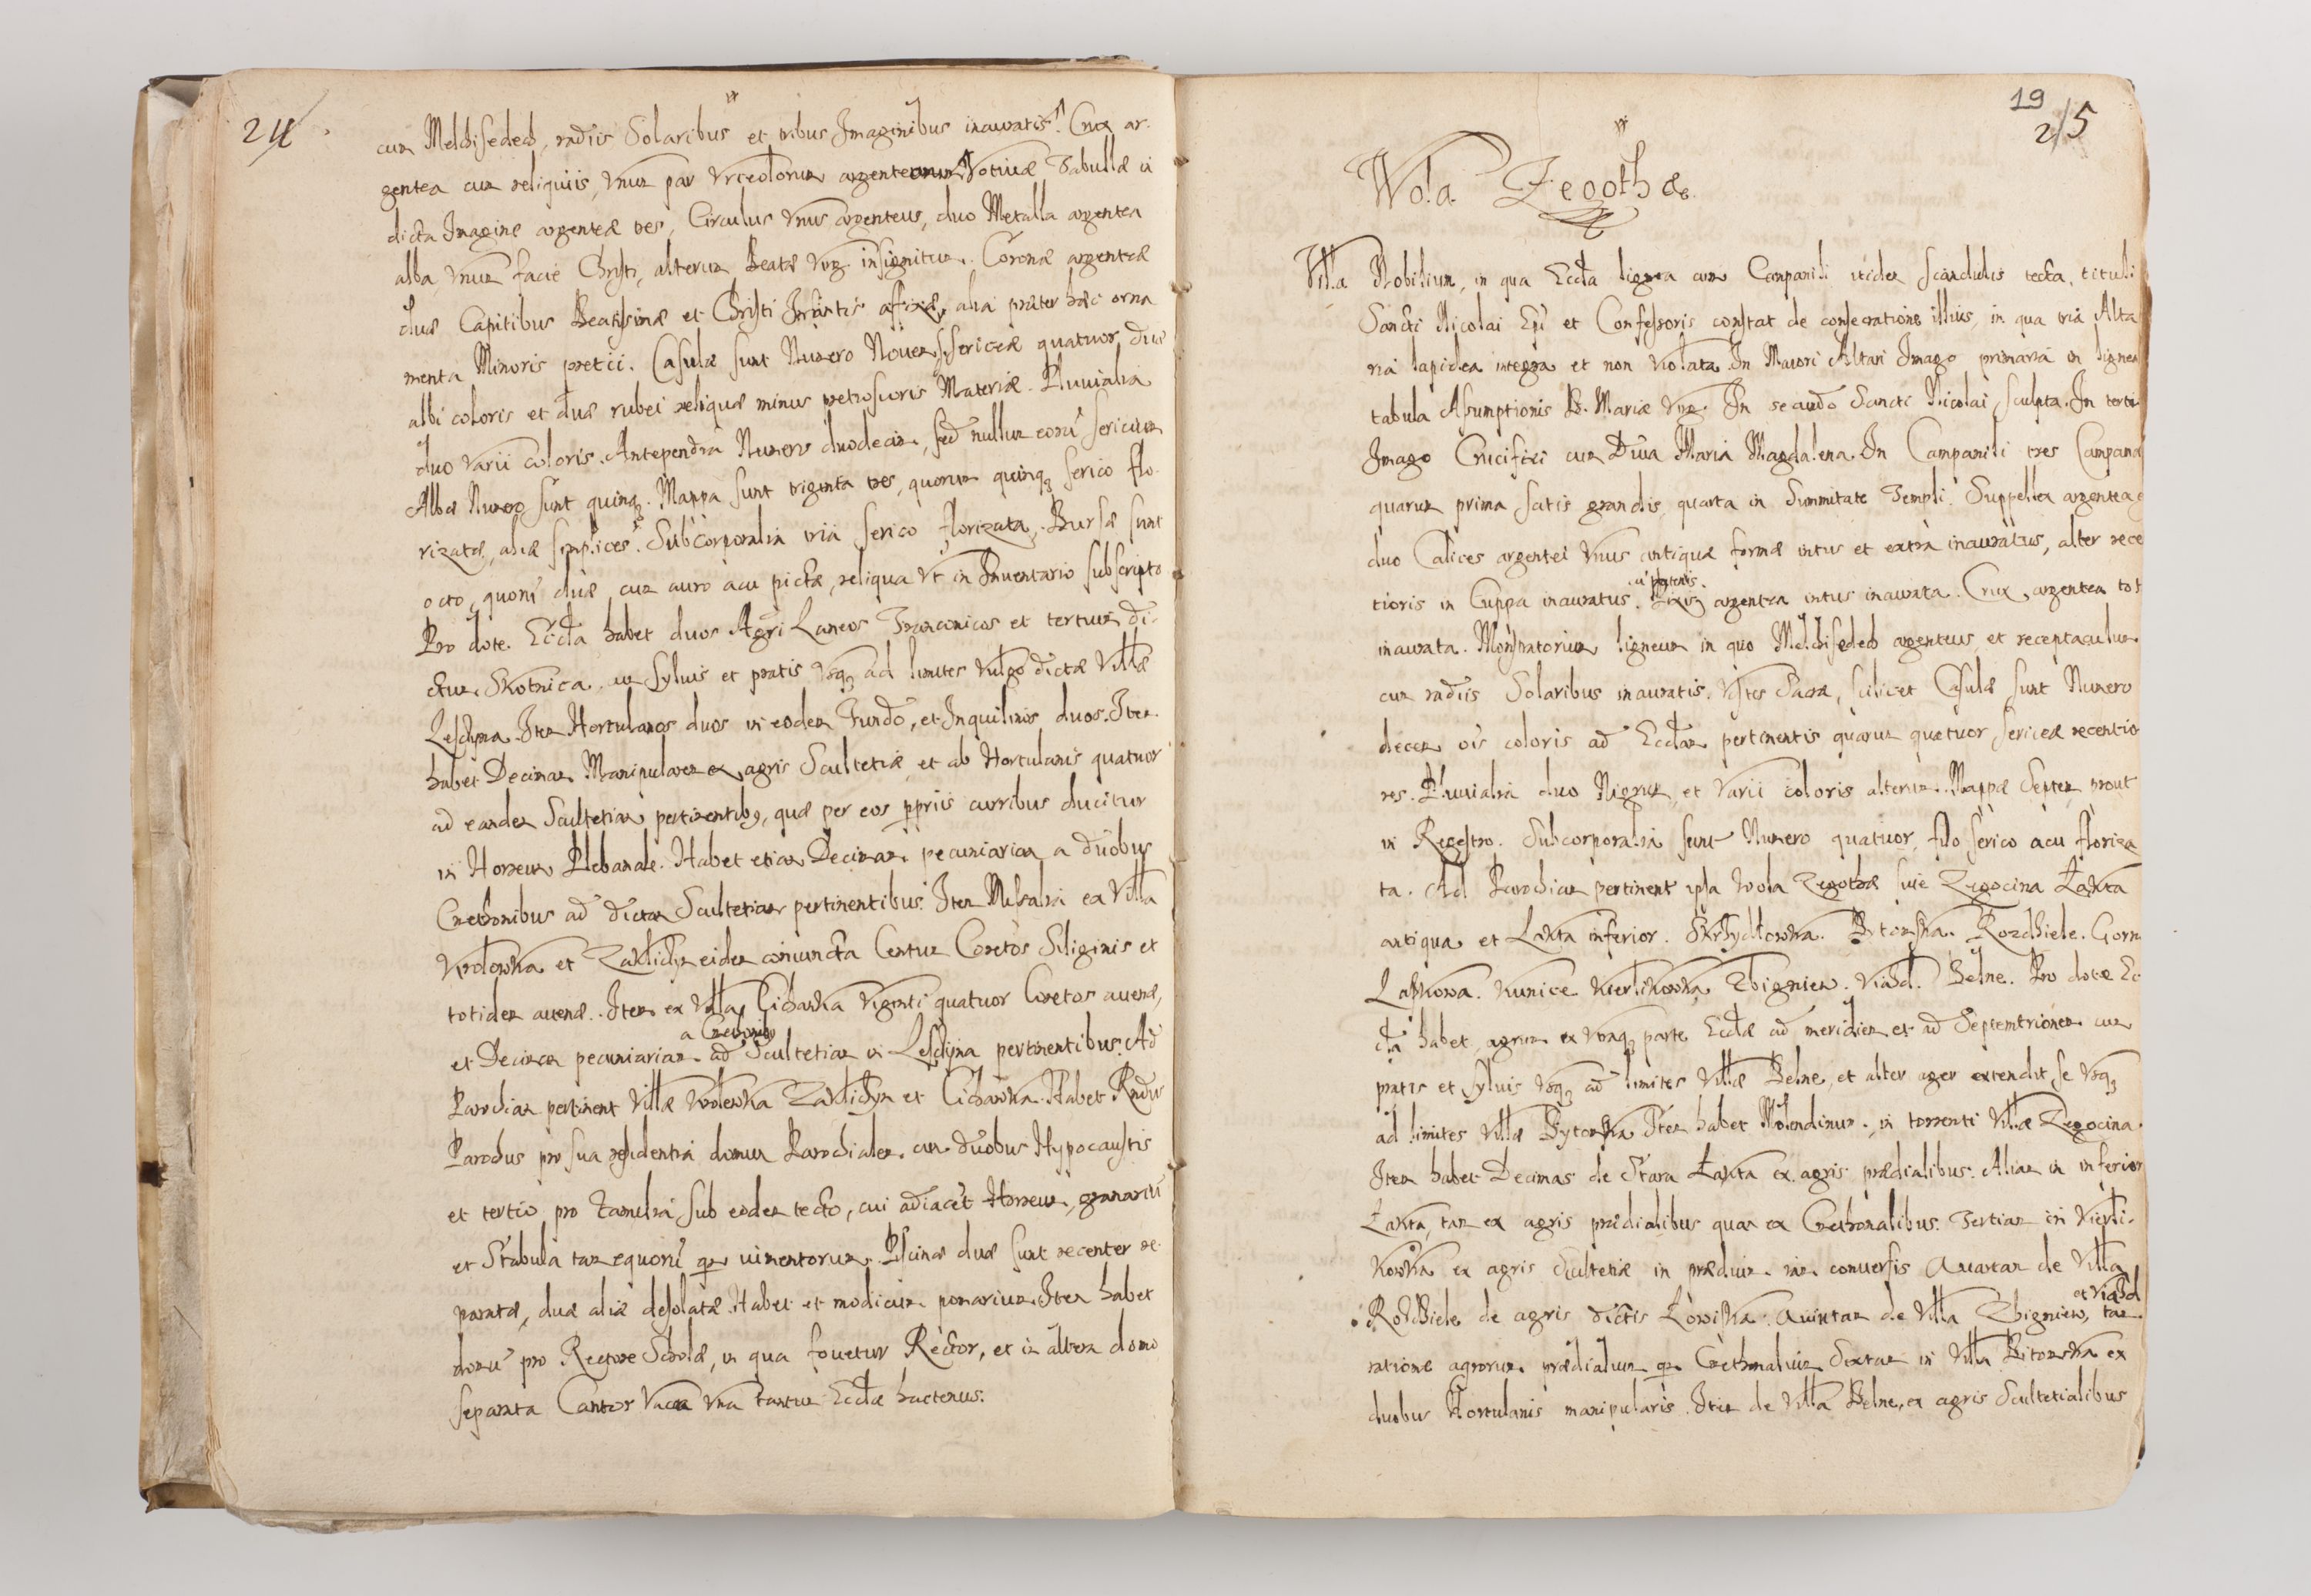 24
cum Melchisedech, radiis Solaribus et tribus Imaginibus inauratis. Crux ar-
gentea cum reliquiis, Vnum par Vrceolorum argenteorum Votiuæ Tabullæ in
dicta Imagine argenteæ tres, Circulus Vnus argenteus, duo Metalla argentea
alba, Vnum facie Christi, alterum Beatæ Virg. insignitum. Coronæ argenteæ
duæ Capitibus Beatissimæ et Christi Infantis afixæ, alia præter hæc orna
menta Minoris pretii. Casulæ sunt Numero Nouem, sericeæ quatuor duæ
albi coloris et duæ rubei reliquæ minus pretiosioris Materiæ. Pluuialia
duo Varii coloris. Antependia Numero duodecim, sed nullum eorũ sericeum
Albæ Numero sunt quinq3. Mappa sunt triginta tres, quorum quinq3 serico flo-
rizatæ, aliæ simplices. Subcorporalia tria serico florizata. Bursæ sunt
octo, quorũ duæ cum auro acu pictæ, reliqua Vt in Inuentario subscripto
Pro dote Eccla habet duos Agri Laneos Franconicos et tertium di-
ctum Skotnica, cum syluis et pratis Vsq3 ad limites Vulgo dictæ Villæ
Leschyna. Item Hortulanos duos in eodem Fundo, et Inquilinos duos. Item
habet Decimam Manipularem ex agris Scultetiæ, et ab Hortulanis quatuor
ad eandem Scultetiam pertinentib9, quæ per eos ppriis curribus ducitur
in Horreum Plebanale. Habet etiam Decimam pecuniariam a duobus
Cmethonibus ad dictam Scultetiam pertinentibus. Item Missalia ex Villa
Krolowka et Zaklichyn eidem coniuncta Centum Coretos Siliginis et
totidem auenæ. Item ex Villa Cichawka Viginti quatuor Coretos auenæ,
a Cmethonib9
et Decimam pecuniariam ad Scultetiam in Leschyna pertinentibus. Ad
Parochiam pertinent Villæ Krolowka Zaklichyn et Cichawka. Habet Rndus
Parochus pro sua residentia domum Parochialem cum duobus Hypocaustis
et tertio pro Familia sub eodem tecto, cui adiacet Horreum, granariũ
et Stabula tam equorũ qm iumentorum. Piscinæ duæ sunt recenter re-
paratæ, duæ aliæ desolatæ. Habet et modicum pomarium. Item habet
domũ pro Rectore Scholæ, in qua fouetur Rector, et in altera domo
separata Cantor Vacca Vna tantum Ecclæ hactenus.
19
25
Wola Zegothæ.
Villa Nobilium, in qua Eccla lignea cum Campanili itidem scandulis tecta, tituli
Sancti Nicolai Epi et Confessoris constat de consecratione illius, in qua tria Alta
ria lapidea integra et non Violata. In Maiori Altari Imago primaria in lignea
tabula Assumptionis B. Mariæ Virg. In secundo Sancti Nicolai sculpta. In terti
Imago Crucifixi cum Diua Maria Magdalena. In Campanili tres Campanæ
quarum prima satis grandis, quarta in Summitate Templi. Suppellex argentea
duo Calices argentei Vnus antiquæ formæ intus et extra inauratus, alter rece
cũ patenis.
tioris in Cuppa inauratus. Pixis argentea intus inaurata. Crux argentea tot
inaurata. Monstratorium ligneum in quo Melchisedech argenteus, et receptaculum
cum radiis Solaribus inauratis. Vestes Sacræ, scilicet Casulæ sunt Numero
decem ois coloris ad Ecclam pertinentis quarum quatuor sericeæ recentio
res. Pluuialia duo Nigrum et Varii coloris alterum. Mappæ Septem prout
in Regestro. Subcorporalia sunt Numero quatuor, filo serico acu floriza
ta. Ad Parochiam pertinent ipsa Wola Zegothæ siue Zegocina Łakta
antiqua et Łakta inferior. Skrzydłowka. Bytomska. Rozdhiele. Gorn
Laskowa. Kunice Kierlikowka Zbigniew. Kiabd. Belne. Pro dote Ec
cla habet agrum ex Vtraq3 parte Ecclæ ad meridiem et ad Septemtrionem cum
pratis et syluis Vsq3 ad limites Villæ Belne, et alter ager extendit se Vsq3
ad limites Villæ Bytomska Item habet Molendinum in torrenti Villæ Zegocina.
Item habet Decimas de Stara Łakta ex agris prædialibus. Aliam in inferior
Łakta, tam ex agris prædialibus quam ex Cmethonalibus. Tertiam in Kierli-
kowka ex agris Scultetiæ in prædium iam conuersis Quartam de Villa
et Kiabd
Rozdhiele de agris dictis Łowiska. Quintam de Villa Zbigniew, tam
ratione agrorum prædialium qm Cmethonalium Sextam in Villa Bitomska ex
duobus Hortulanis manipularis. Item de Villa Belne, ex agris Scultetialibus